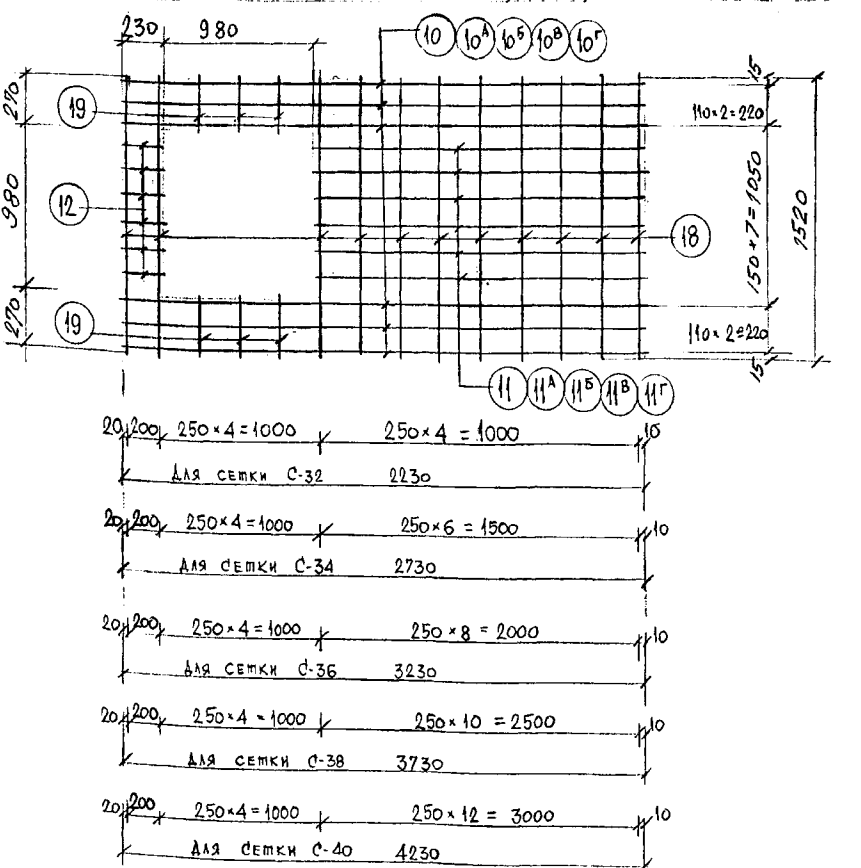 230 980
10 10А 10Б 10В 10Г
270
19
15
110×2=220
980
12
18
150×7=1050
1520
270
19
110×2=220
15
11 11А 11Б 11В 11Г
20 200 250×4=1000 250×4=1000 10
Для сетки С-32 2230
20 200 250×4=1000 250×6=1500 10
Для сетки С-34 2730
20 200 250×4=1000 250×8=2000 10
Для сетки С-36 3230
20 200 250×4=1000 250×10=2500 10
Для сетки С-38 3730
20 200 250×4=1000 250×12=3000 10
Для сетки С-40 4230